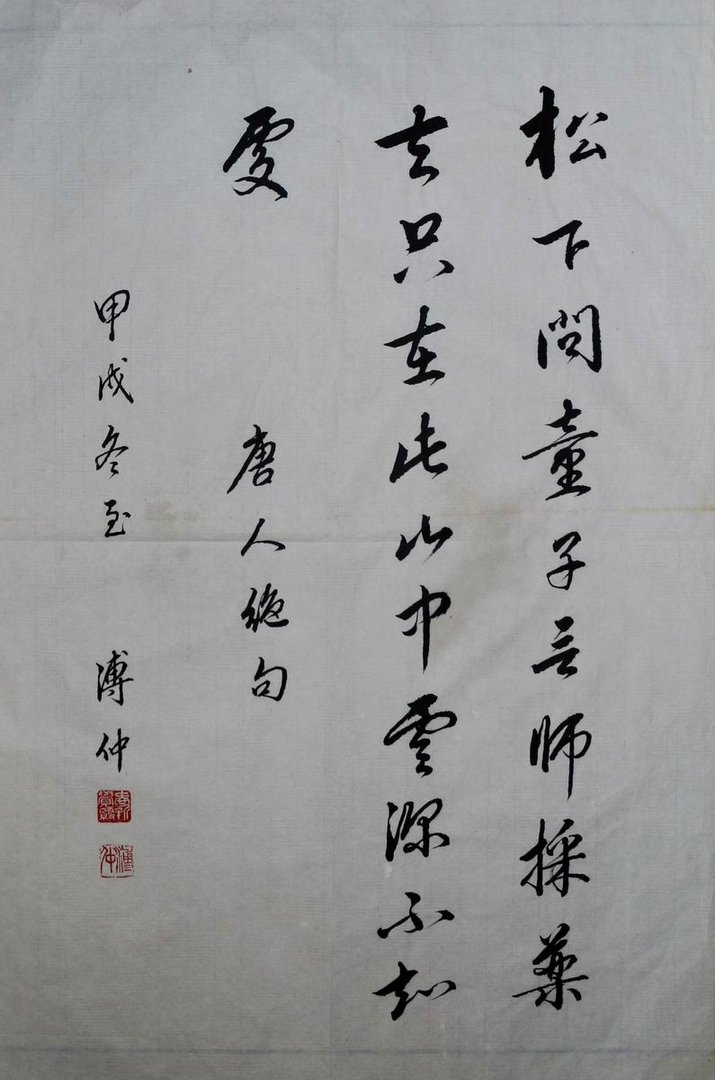 松下問童子言師採藥
去只在此山中雲深不知
處
唐人絕句
甲戌冬至
溥仲